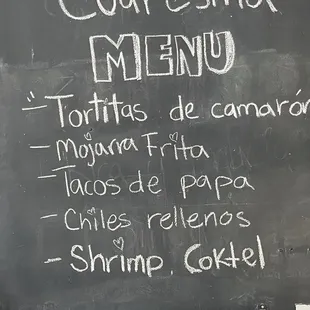 Cuaresma
MENU
- Tortitas de camarón
- Mojarra Frita
- Tacos de papa
- Chiles rellenos
- Shrimp. Coktel